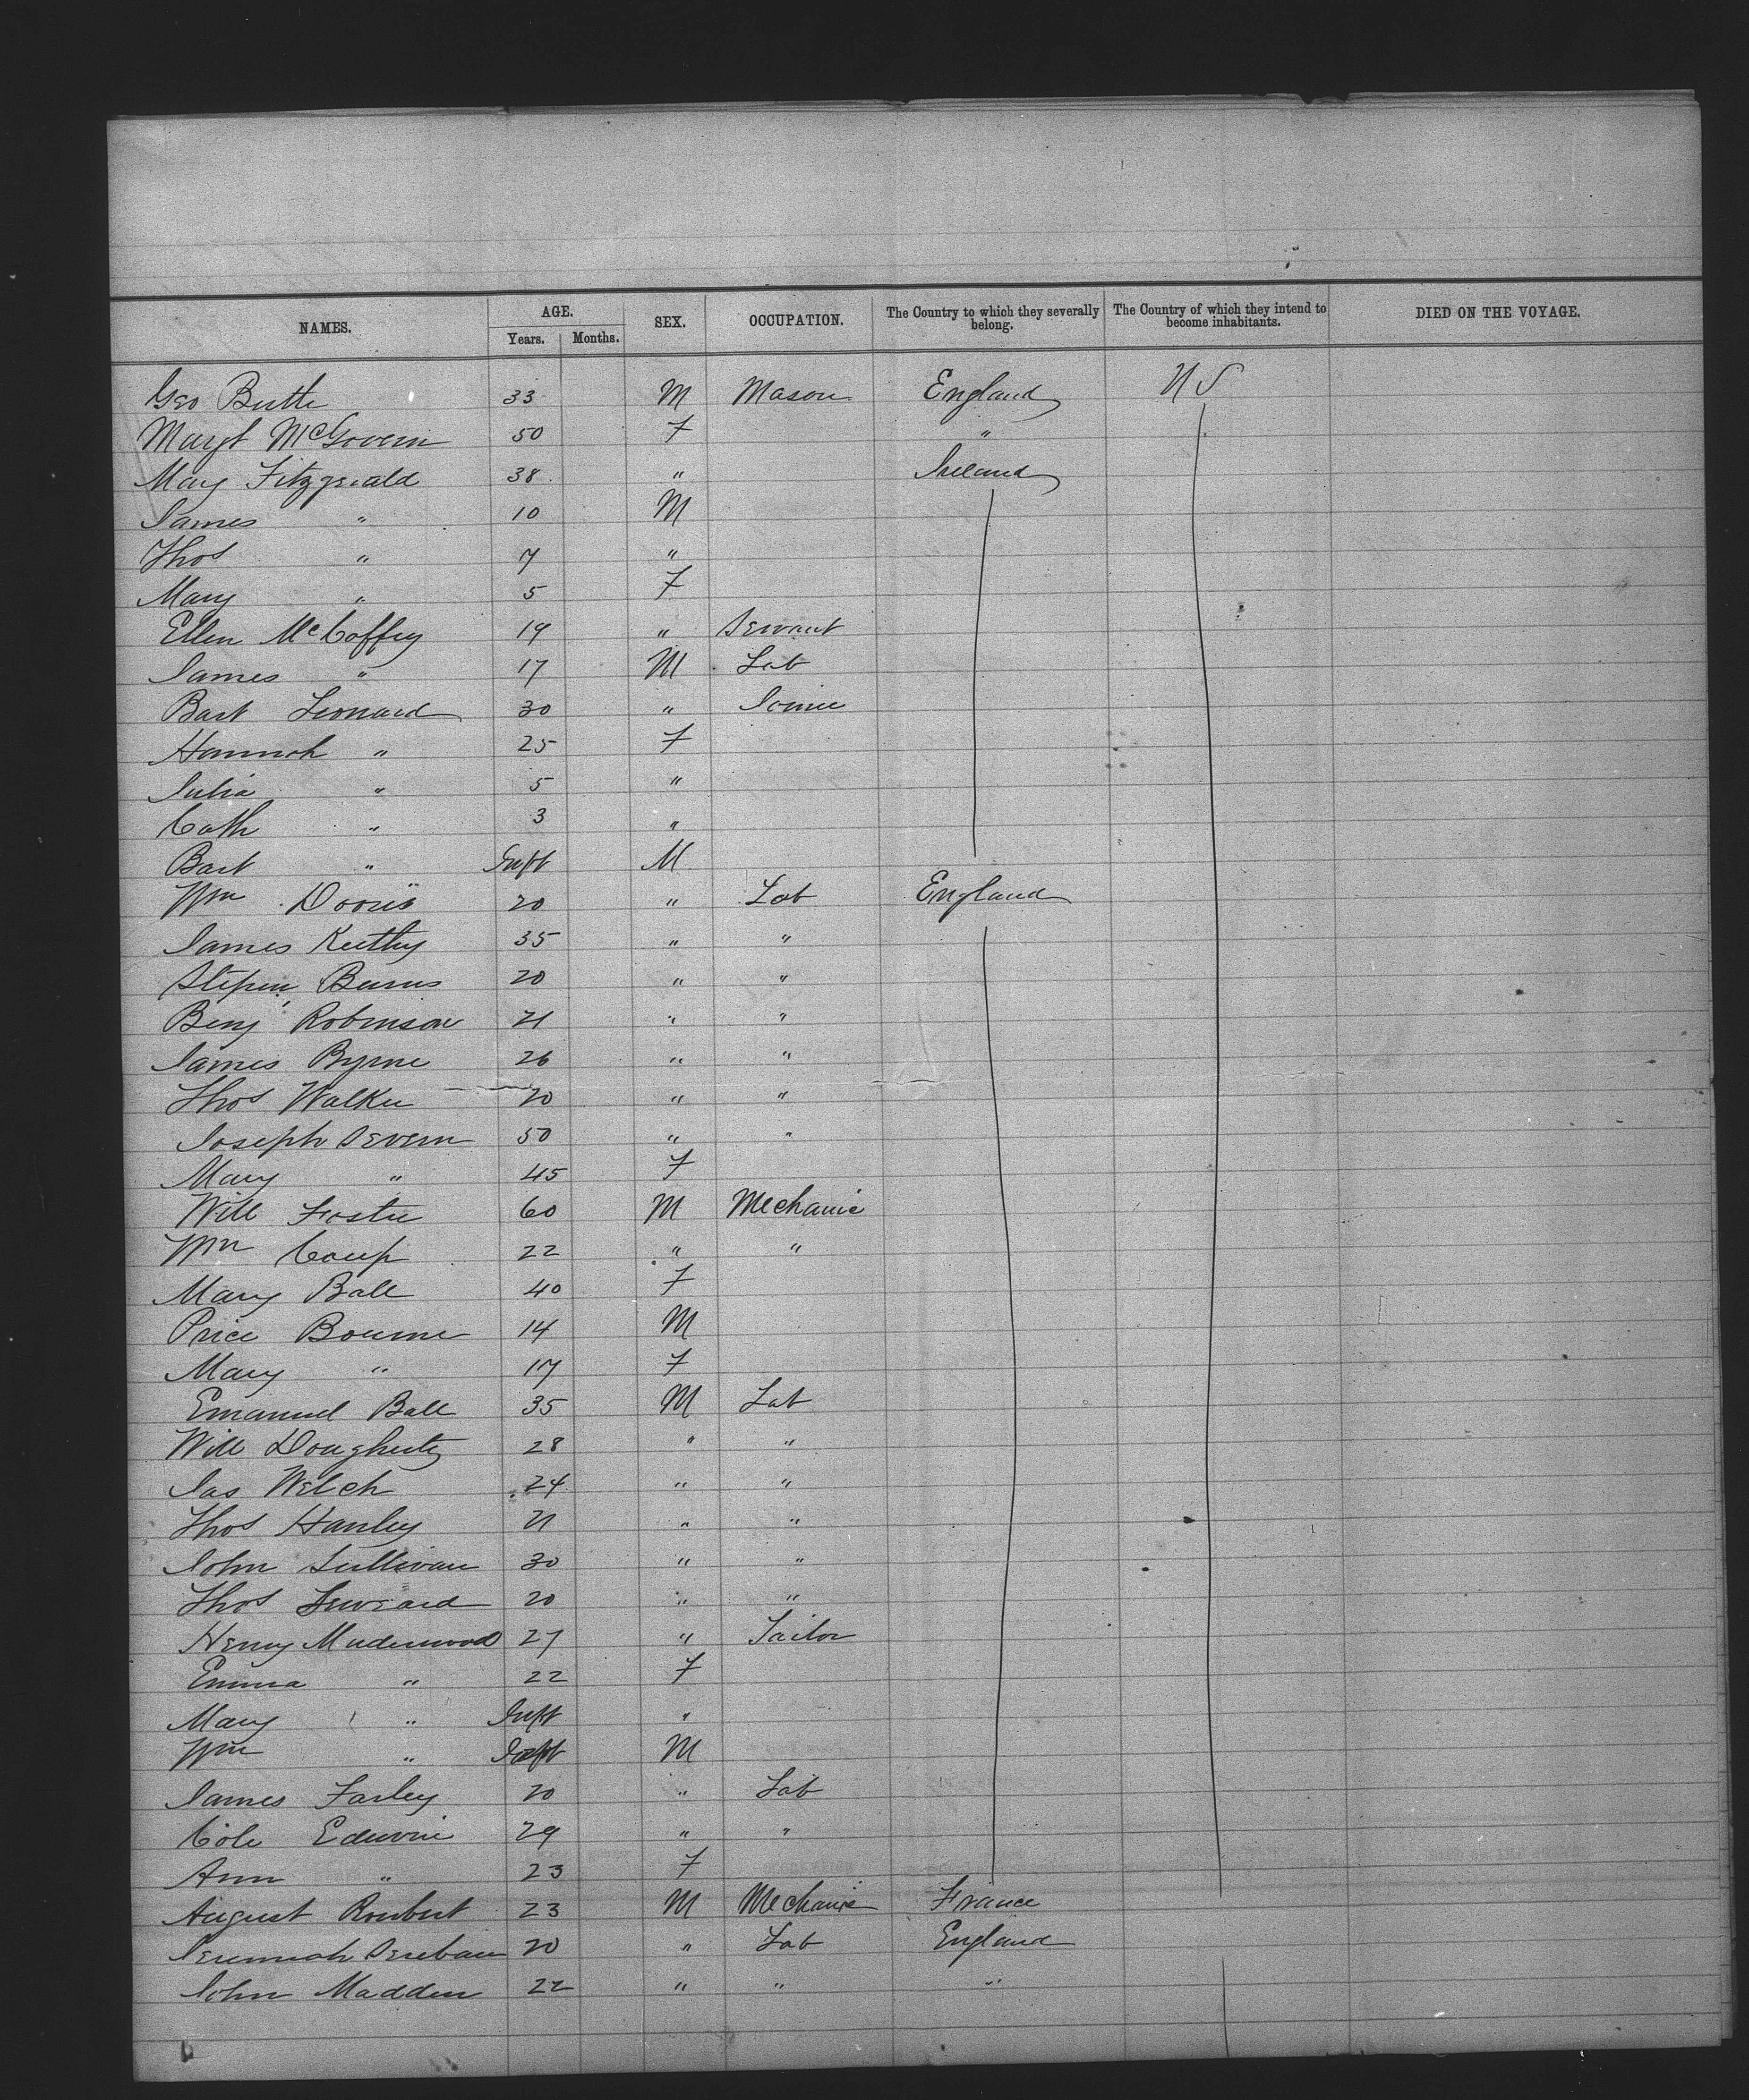 NAMES. AGE. SEX. OCCUPATION. The Country to which they severally belong. The Country of which they intend to become inhabitants. DIED ON THE VOYAGE.
Years. Months.
Geo 33 M Mason England U S
Margt McGovern 50 F "
Mary Fitzgerald 38 " Ireland
James " 10 M
Thos " 7 "
Mary " 5 F
Ellen McCaffey 19 " Servant
James " 17 M Lab
Bart Leonard 30 "
Hannah " 25 F
Julia " 5 "
Cath " 3 "
Bart " Inft M
Wm 20 " Lab England
James 35 " "
Stepen Burns 20 " "
Benj Robinson 21 " "
James Byrne 26 " "
Thos Walker 20 " "
Joseph Severn 50 " "
Mary " 45 F
Will Foster 60 M Mechanic
Wm Coup 22 " "
Mary Ball 40 F
Price Bourne 14 M
Mary " 17 F
Emanuel Ball 35 M Lab
Will Dougherty 28 " "
Jas Welch 24 " "
Thos Hanley 21 " "
John Sullivan 30 " "
Thos 20 " "
Henry 27 " Tailor
Emma " 22 F
Mary " Inft "
Wm " Inft M
James Farley 20 " Lab
Cole Edwin 29 " "
Ann " 23 F
August 23 M Mechanic France
Jeremiah 20 " Lab England
John Madden 22 " " "